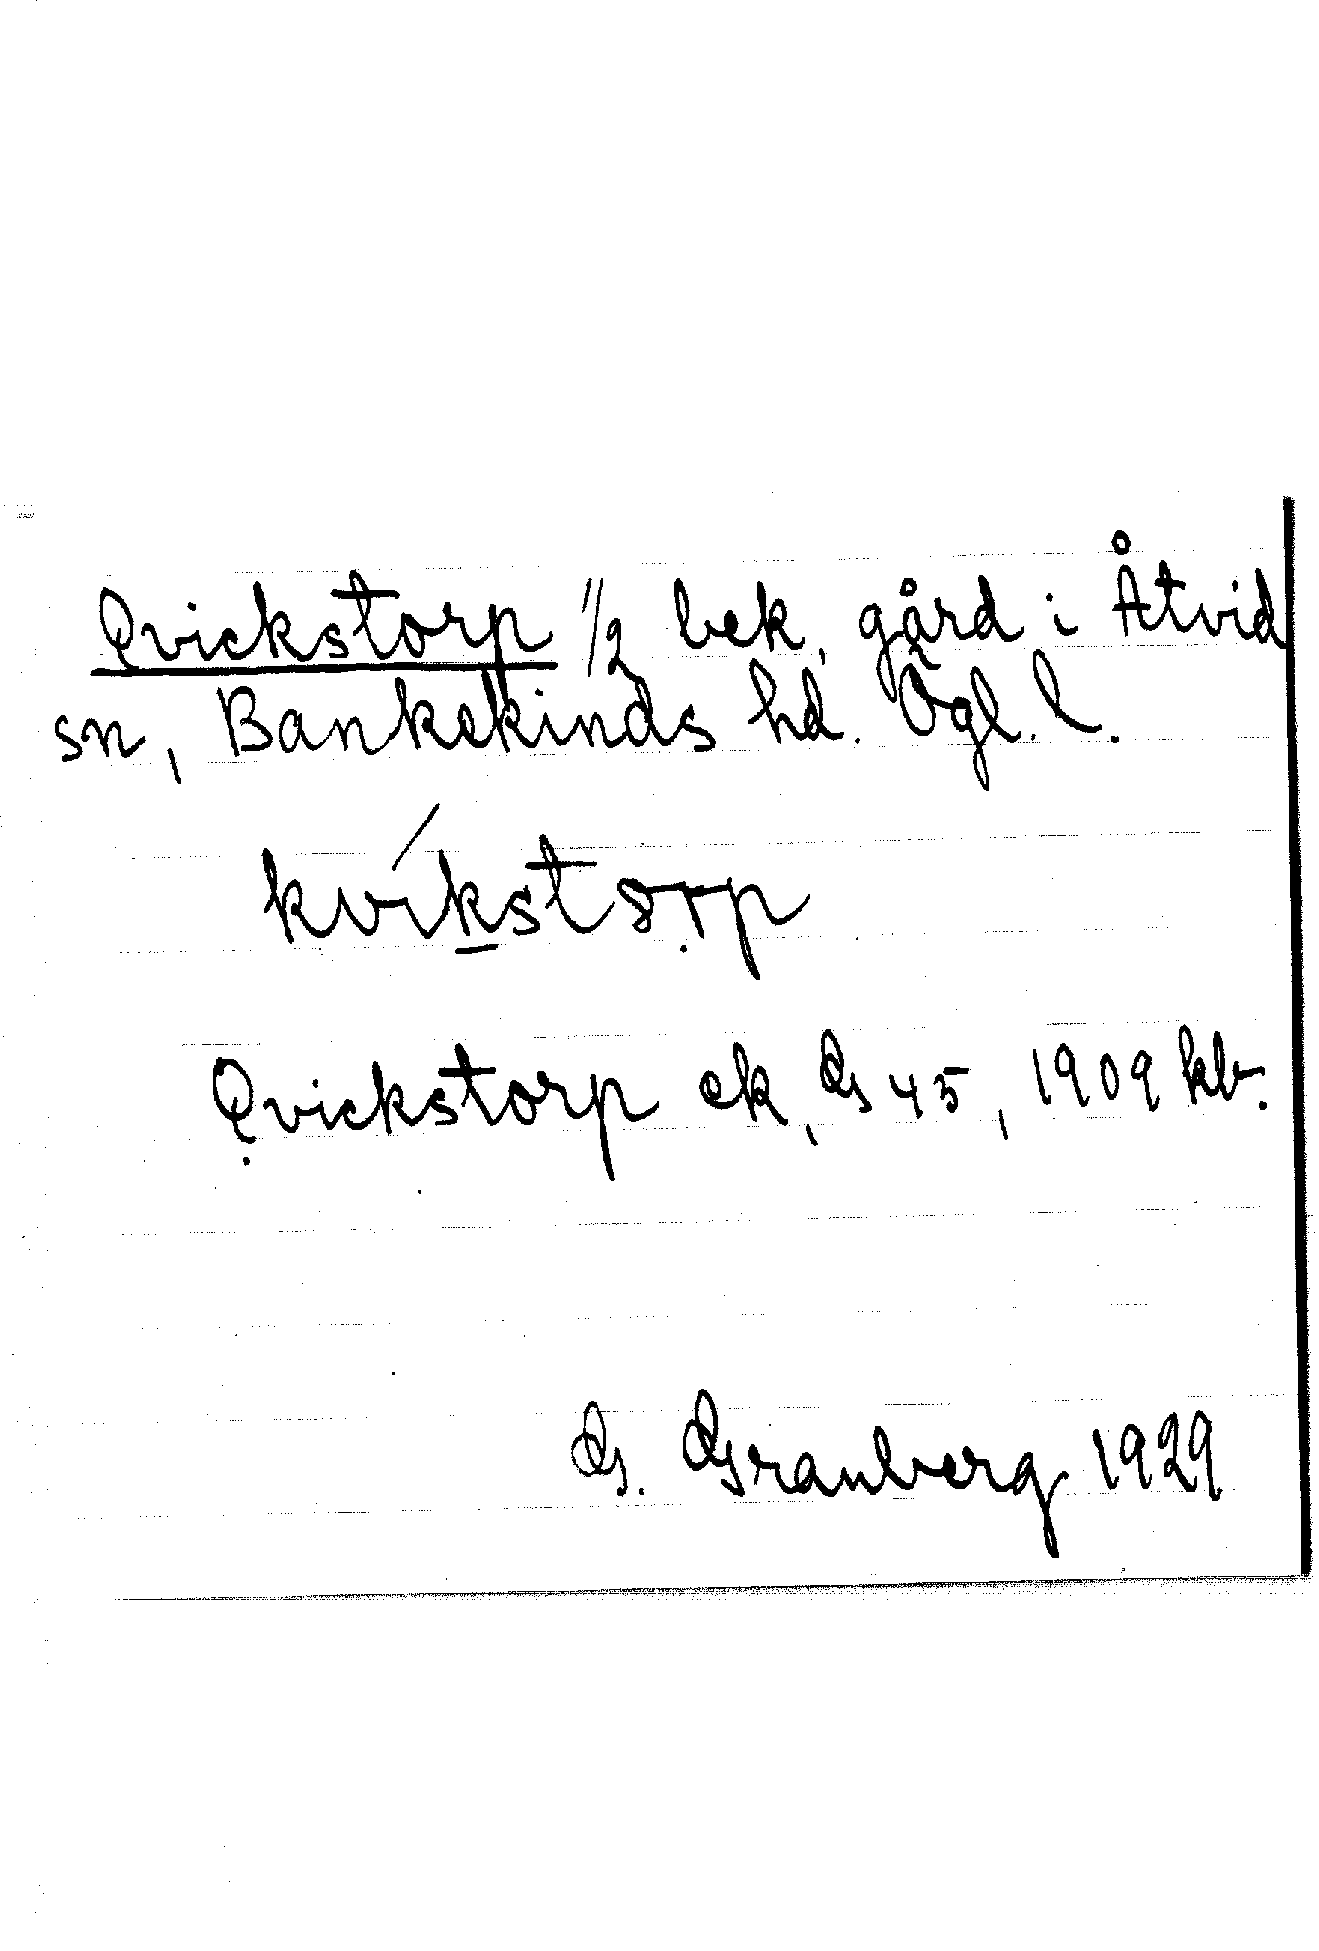 Qvickstorp 1/2 bek. gård i Åtvid
sn, Bankekinds hd. Ögl. l.
Qvickstorp ek, G 45, 1909 kb.
G. Granberg 1929